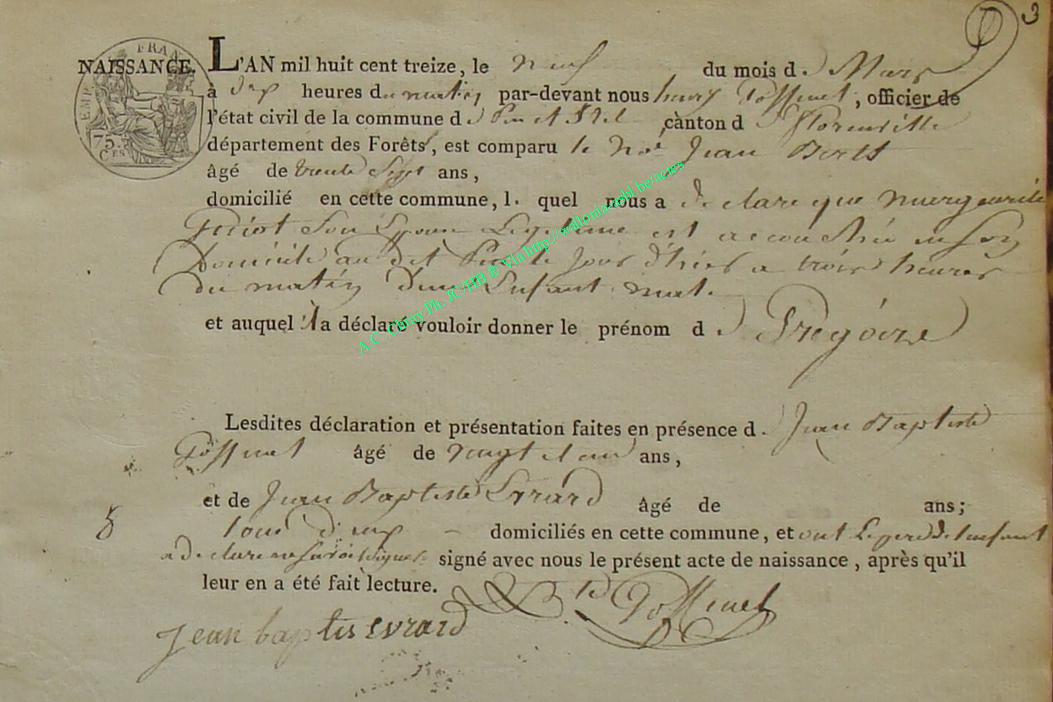 3
EMP FRAN
75.
CES
NAISSANCE. L'AN mil huit cent treize, le neuf du mois de Mars
à dix heures du matin par-devant nous henry Possinet, officier de
l'état civil de la commune de canton de florenville
département des Forêts, est comparu le Jean
âgé de trente Sept ans,
domicilié en cette commune, l. quel nous a declare que marguerite
Son Epouse Legitime est accouchée en Son
Domicile au dit le jour d'hier a trois heures
du matin d'un Enfant mal.
et auquel il a déclaré vouloir donner le prénom de Gregoire
Lesdites déclaration et présentation faites en présence d. Jean Baptiste
Possinet âgé de vingt et un ans,
et de Jean Baptiste Evrard âgé de ans;
tous deux domiciliés en cette commune, et ont Le pere de l'enfant
a declare ne Savoir Signer signé avec nous le présent acte de naissance, après qu'il
leur en a été fait lecture.
Possinet
jean baptis evrard
A.C. Chiny Ph. JC HH & Via http://wallonia.ch be/actes